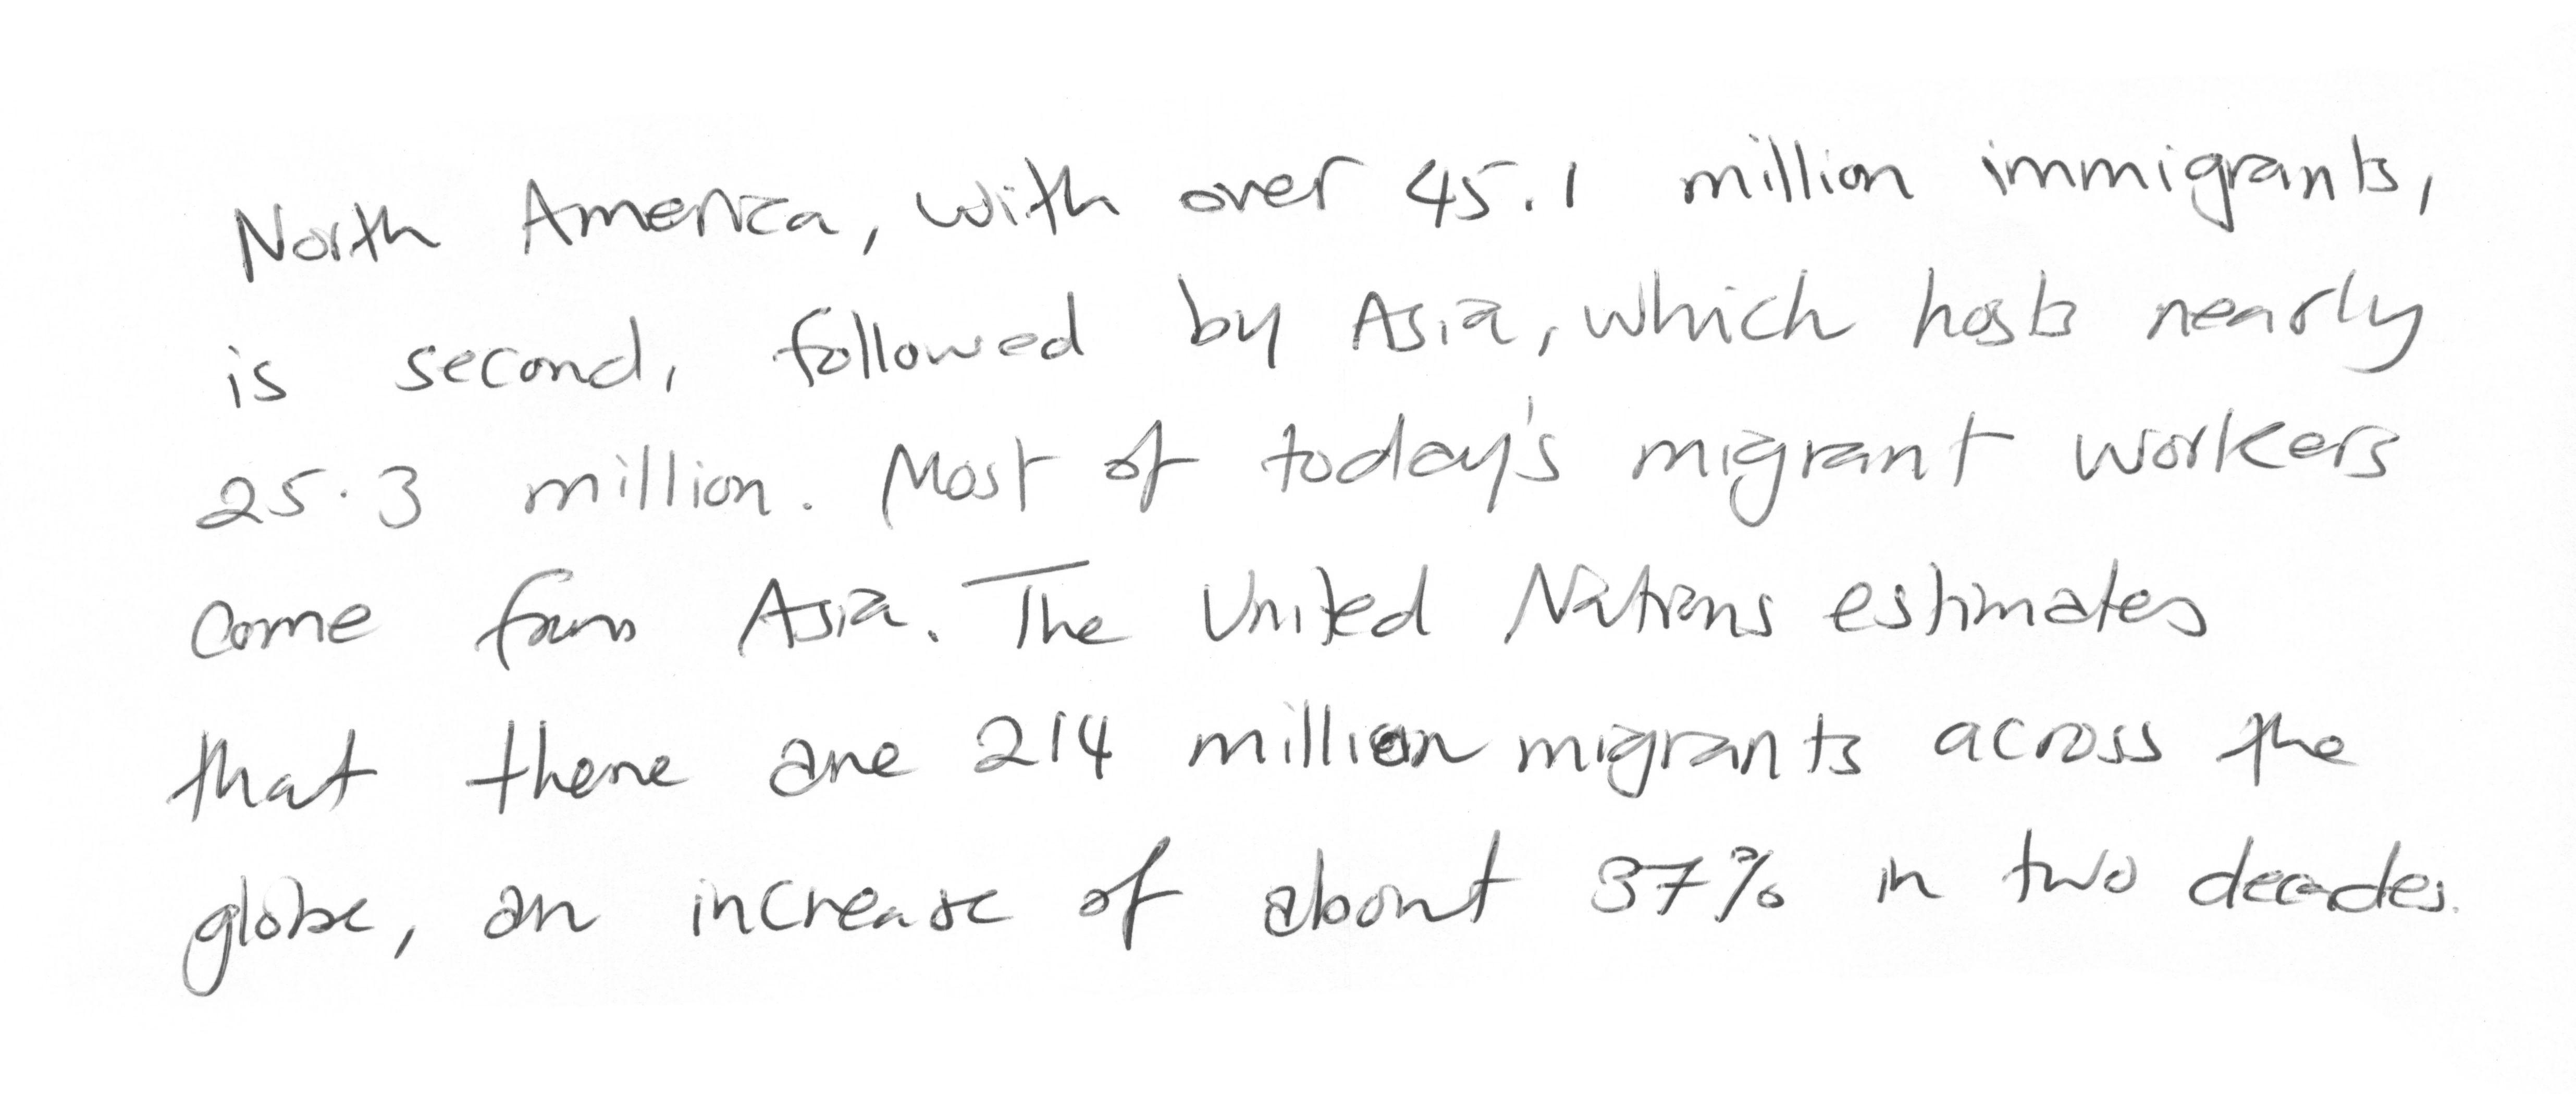 North America, with over 45.1 million immigrants,
is second, followed by Asia, which hosts nearly
25.3 million. Most of today's migrant workers
come from Asia. The United Nations estimates
that there are 214 million migrants across the
globe, an increase of about 37% in two decades.